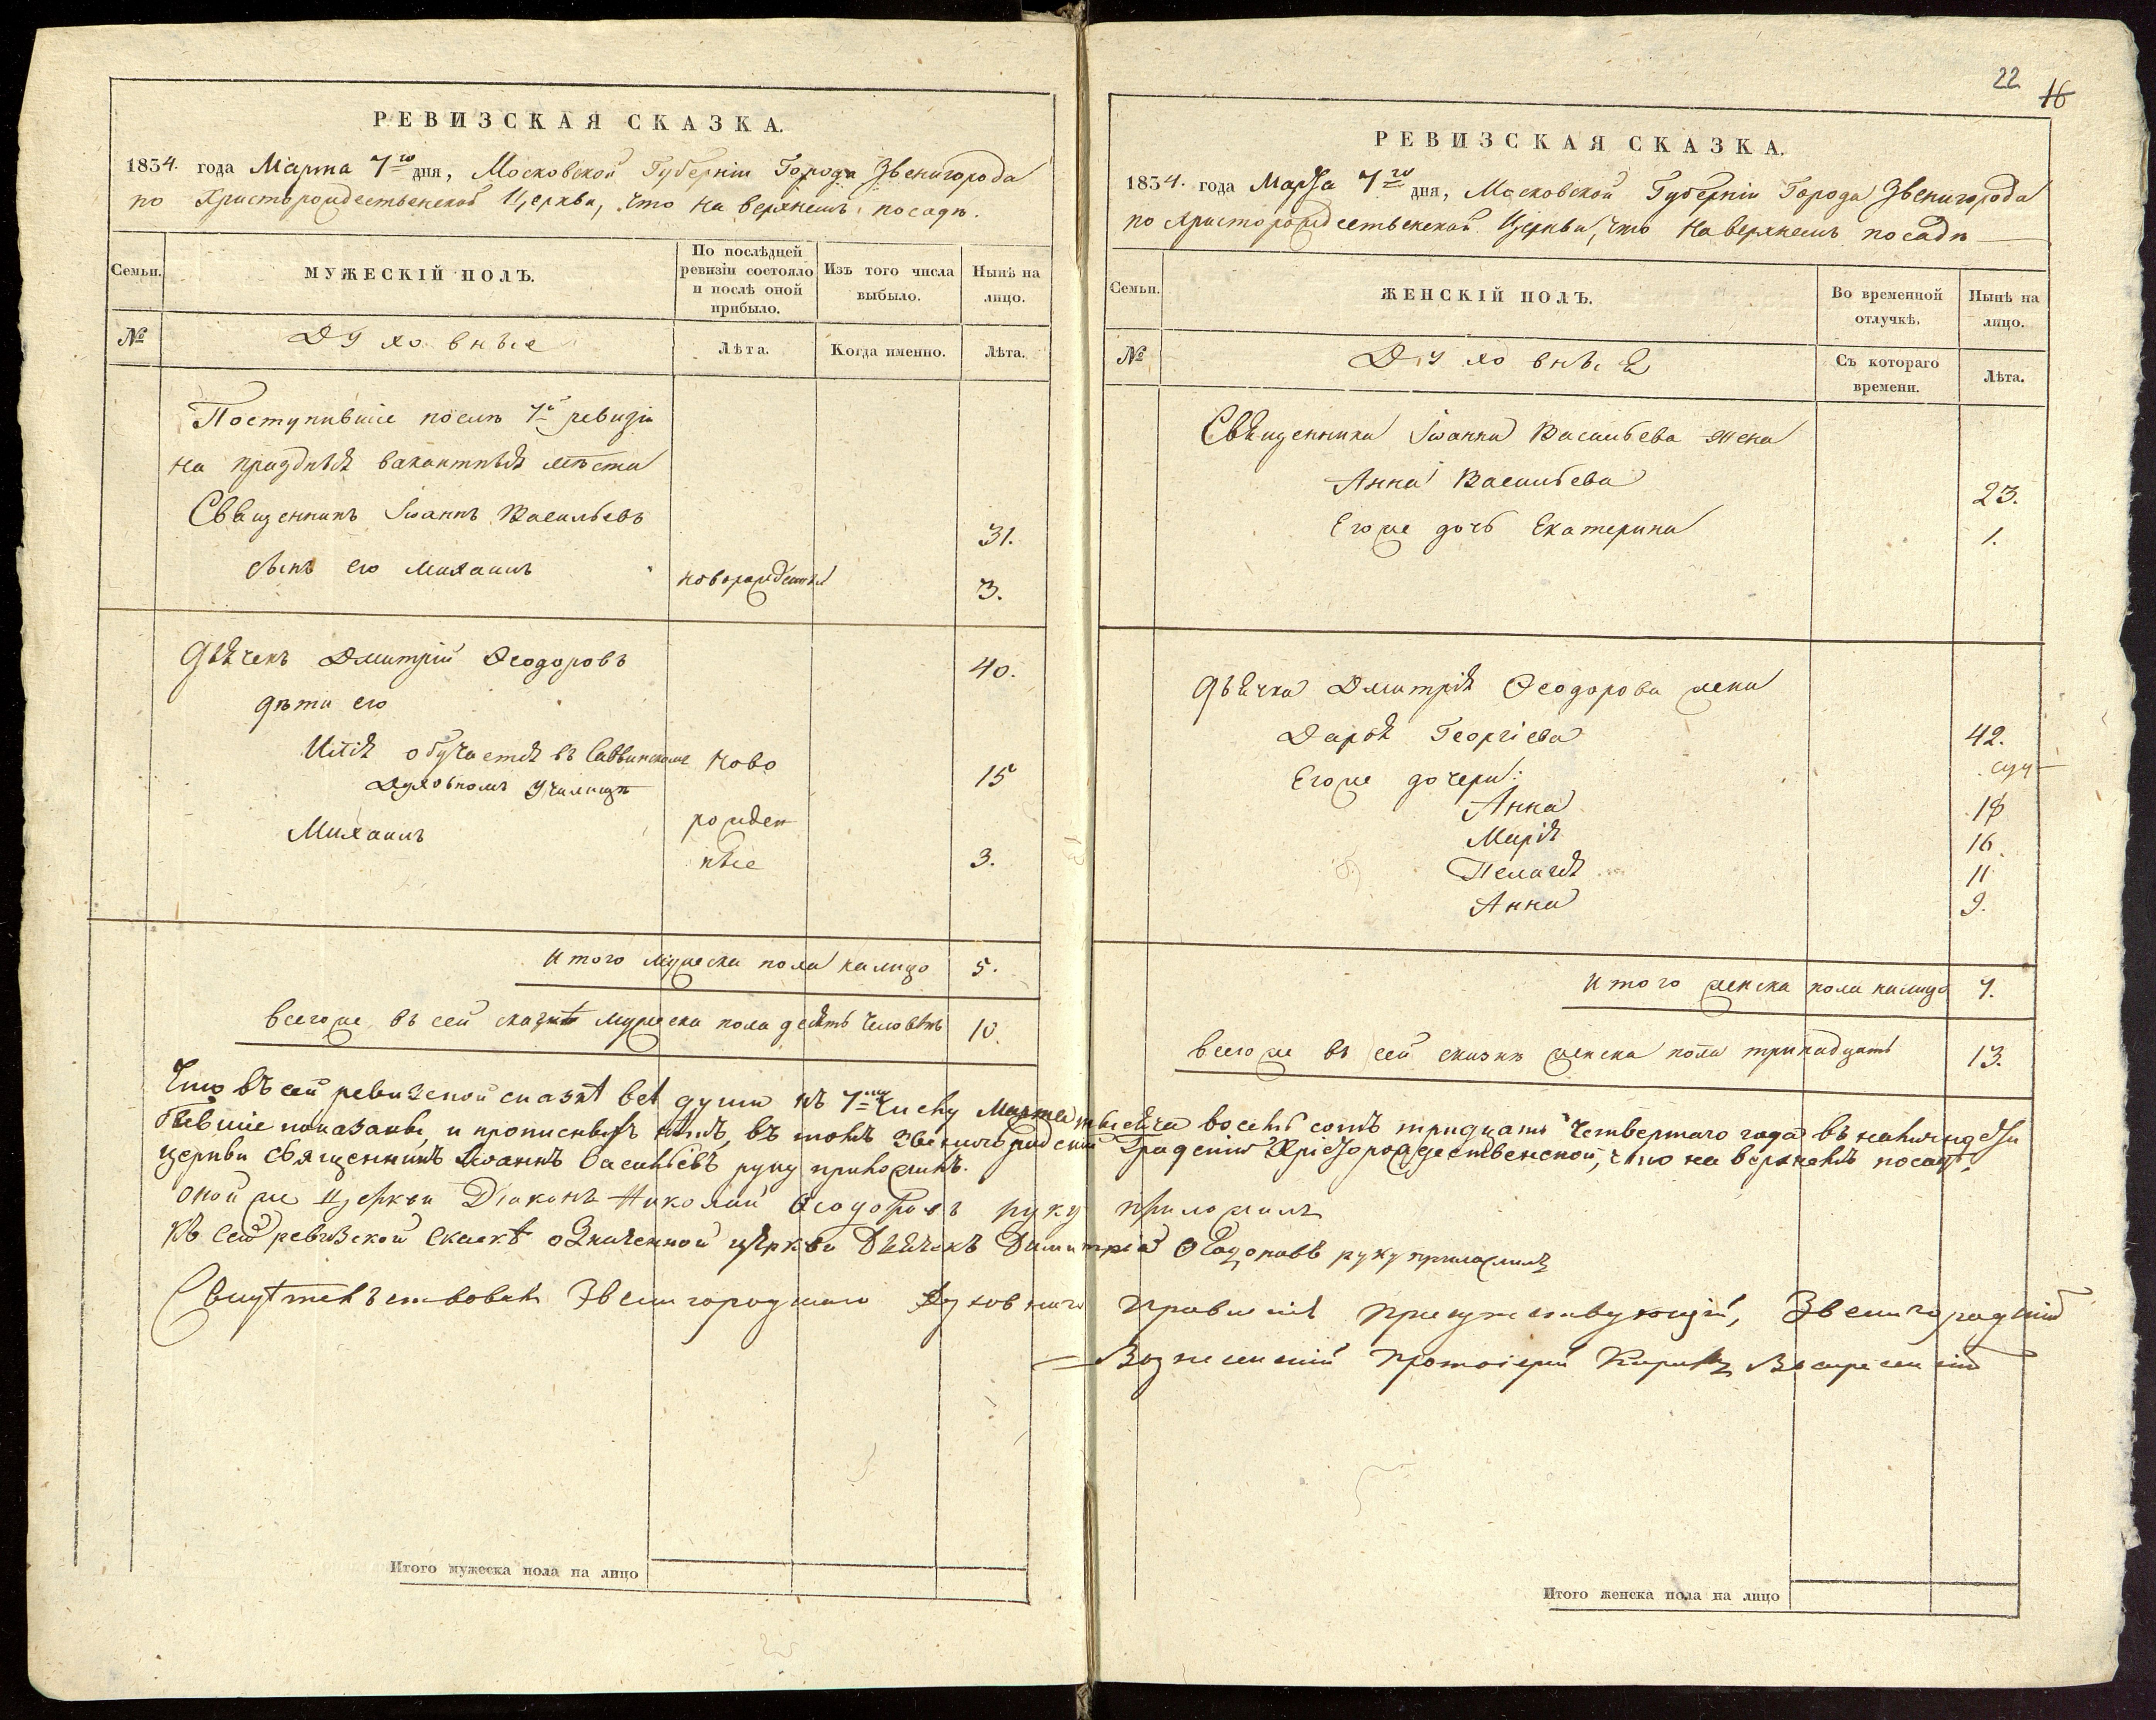 РЕВИЗСКАЯ СКАЗКА.
1834. года Марта 7го дня, Московской Губерніи Города Звенигорода
по Христорождественской Церкви, что на верхнемъ посадѣ.
Семьи.
МУЖЕСКІЙ ПОЛЪ.
По послѣдней ревизіи состояло и послѣ оной прибыло.
Изъ того числа выбыло.
Нынѣ на лицо.
№
Духовные
Лѣта.
Когда именно.
Лѣта.
Поступившіе послѣ 7й ревизіи
на праздныя вакантныя мѣста
Священникъ Іоаннъ Васильевъ 31.
сынъ его Михаилъ новорожденный 3.
Дьячекъ Дмитрій Ѳеодоровъ 40.
дѣти его
Илія обучается въ Саввинскомъ ново 15
Духовномъ Училищѣ
Михаилъ рожден
ные 3.
Итого мужеска пола налицо 5.
Всегоже въ сей сказкѣ мужеска пола десять человѣкъ 10.
22
16
РЕВИЗСКАЯ СКАЗКА.
1834. года Марта 7го дня, Московской Губерніи Города Звенигорода
по Христорождественской Церкви, что на верхнемъ посадѣ
Семьи.
ЖЕНСКІЙ ПОЛЪ.
Во временной отлучкѣ.
Нынѣ на лицо.
№
Духовные
Съ котораго времени.
Лѣта.
Священника Іоанна Васильева жена
Анна Васильева 23.
Егоже дочь Екатерина 1.
Дьячка Дмитрія Ѳеодорова жена
Дарья Георгіева 42.
Егоже дочери:
Анна 18
Марія 16
Пелагія 11
Анна 9.
Итого женска пола налицо 7.
Всегоже въ сей сказкѣ женска пола тринадцать 13.
Что въ сей ревизской сказкѣ всѣ души къ 7му числу Марта тысяча восемь сотъ тридцать четвертаго года въ наличности
бывшіе показаны, и прописныхъ нѣтъ, въ томъ Звенигородской Градской Христорождественской, что на верхнемъ посадѣ,
церкви священникъ Іоаннъ Васильевъ руку приложилъ.
оной же Церкви Діаконъ Николай Ѳеодоровъ руку приложилъ
Къ сей ревизской сказкѣ означенной церкви Дьячекъ Димитрій Ѳеодоровъ руку приложилъ
Свидѣтельствовалъ Звенигородскаго Духовнаго Правленія присутствующій, Звенигородскій
Вознесенскій протоіерей Кириллъ Воскресенскій
Итого мужеска пола на лицо
Итого женска пола на лицо